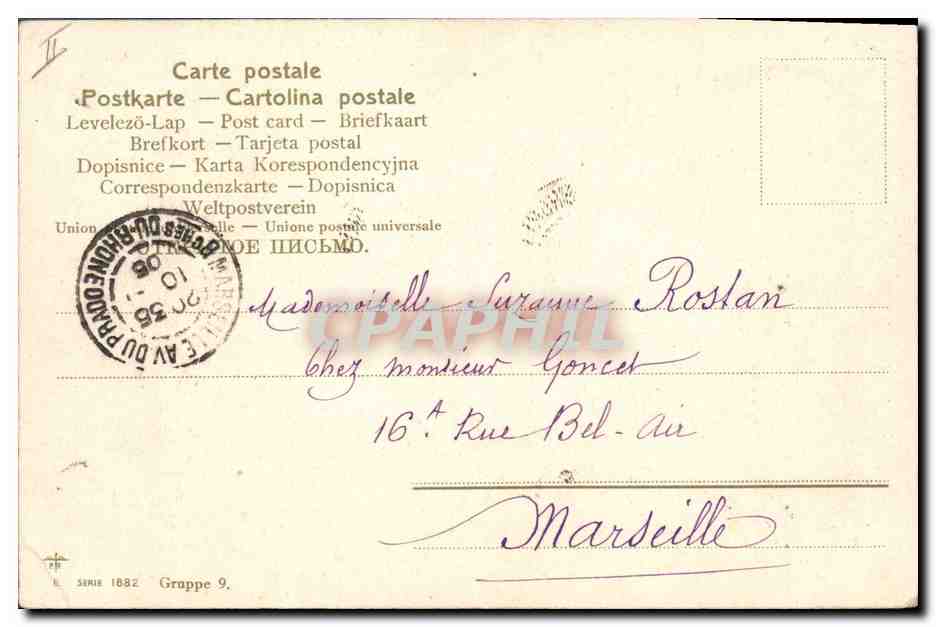 II
Carte postale
Postkarte — Cartolina postale
Levelező-Lap — Post card — Briefkaart
Brefkort — Tarjeta postal
Dopisnice — Karta Korespondencyjna
Correspondenzkarte — Dopisnica
Weltpostverein
Union — Unione postale universale
ПИСЬМО.
MARSEILLE AV DU PRADO
BCHES DU RHONE
35
10
05
CPAPHIL
Mademoiselle Suzanne Rostan
Chez monsieur Goncet
16A. Rue Bel-Air
Marseille
SERIE 1682 Gruppe 9.